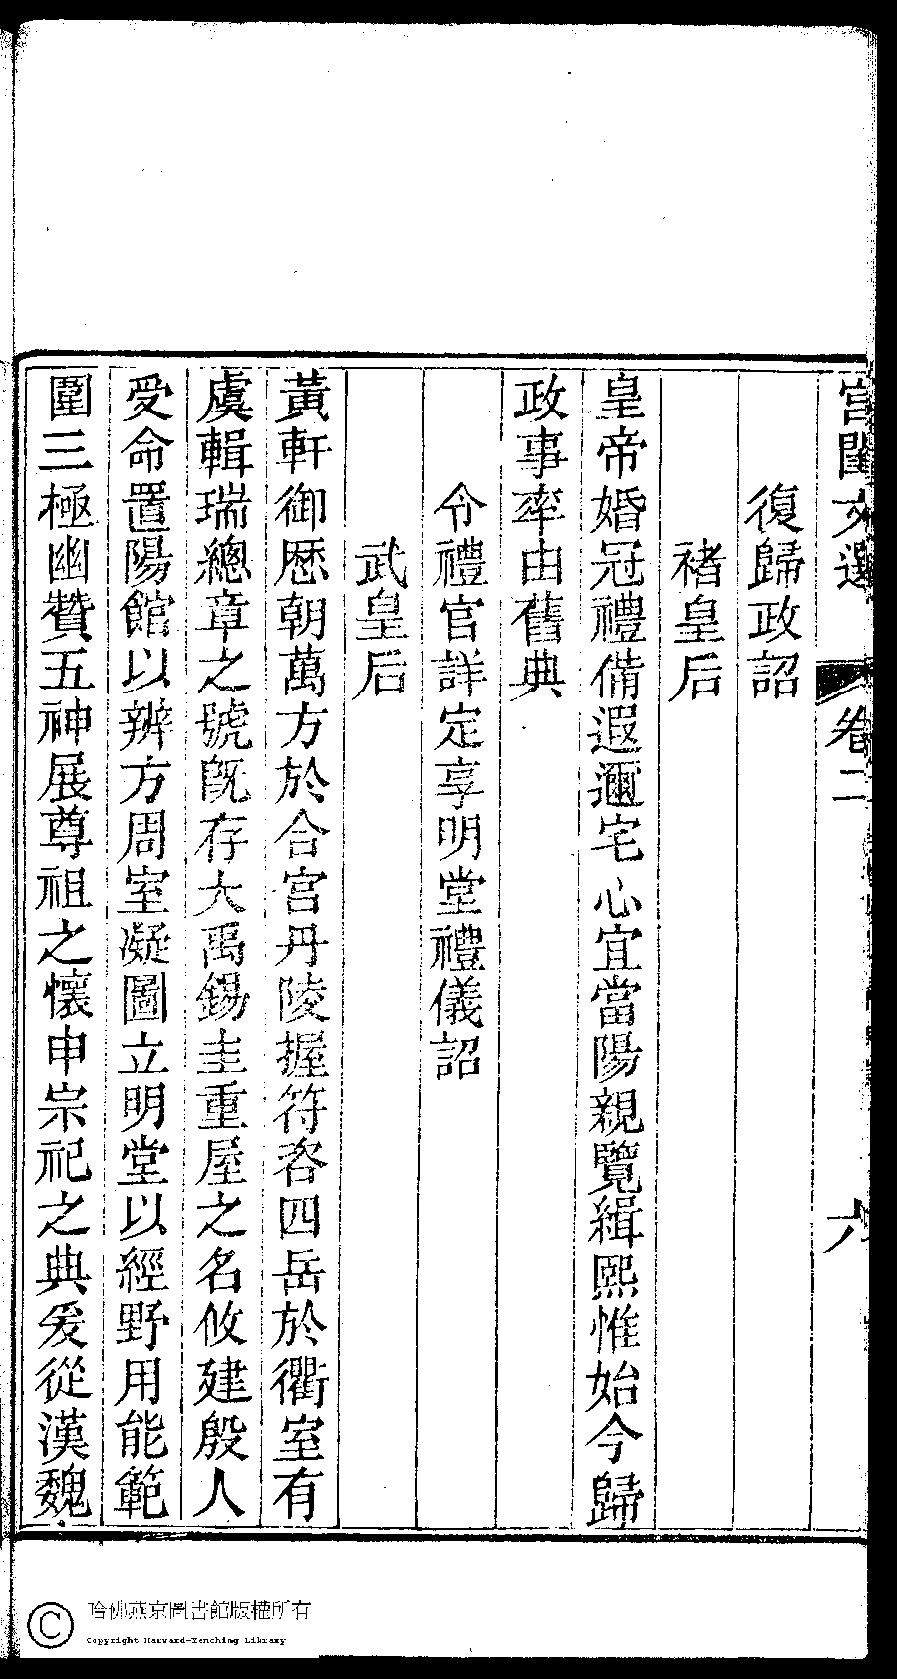 宮閨文選 卷二 六
復歸政詔
褚皇后
皇帝婚冠禮備遐邇宅心宜當陽親覽緝熙惟始今歸
政事率由舊典
令禮官詳定享明堂禮儀詔
武皇后
黃軒御歷朝萬方於合宮丹陵握符咨四岳於衢室有
虞輯瑞總章之號旣存大禹錫圭重屋之名攸建殷人
受命置陽館以辨方周室凝圖立明堂以經野用能範
圍三極幽贊五神展尊祖之懷申宗祀之典爰從漢魏
哈佛燕京圖書館版權所有
Copyright Harvard-Yenching Library